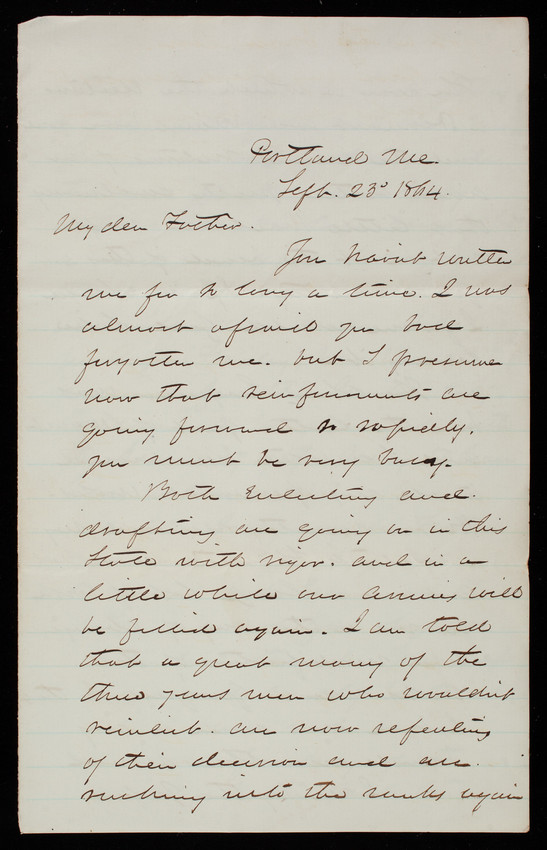 Portland Me.
Sept. 23d 1864.
My dear Father.
You havnt written
me for so long a time. I was
almost afraid you had
forgotten me. but I presume
now that reinforcements are
going forward so rapidly.
you must be very busy.
Both Enlisting and
drafting are going on in this
State with vigor. and in a
little while our Armies will
be filled again. I am told
that a great many of the
three years men who wouldn't
reinlist. are now repenting
of their decision and are
rushing into the ranks again